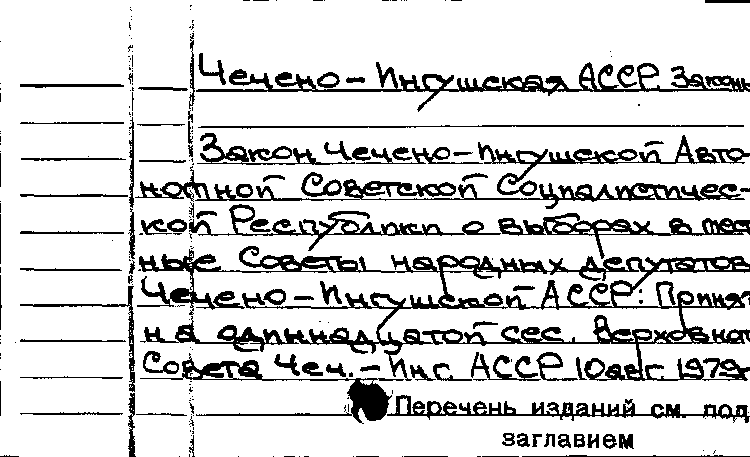 Чечено-Ингушская АССР. Законы
Закон Чечено-Ингушской Авто-
номной Советской Социалистичес-
кой Республики о выборах в мест
ные Советы народных депутатов
Чечено-Ингушской АССР: Принят
на одиннадцатой сес. Верховног
Совета Чеч.-Инг. АССР 10 авг. 1979г
Перечень изданий см. под
заглавием